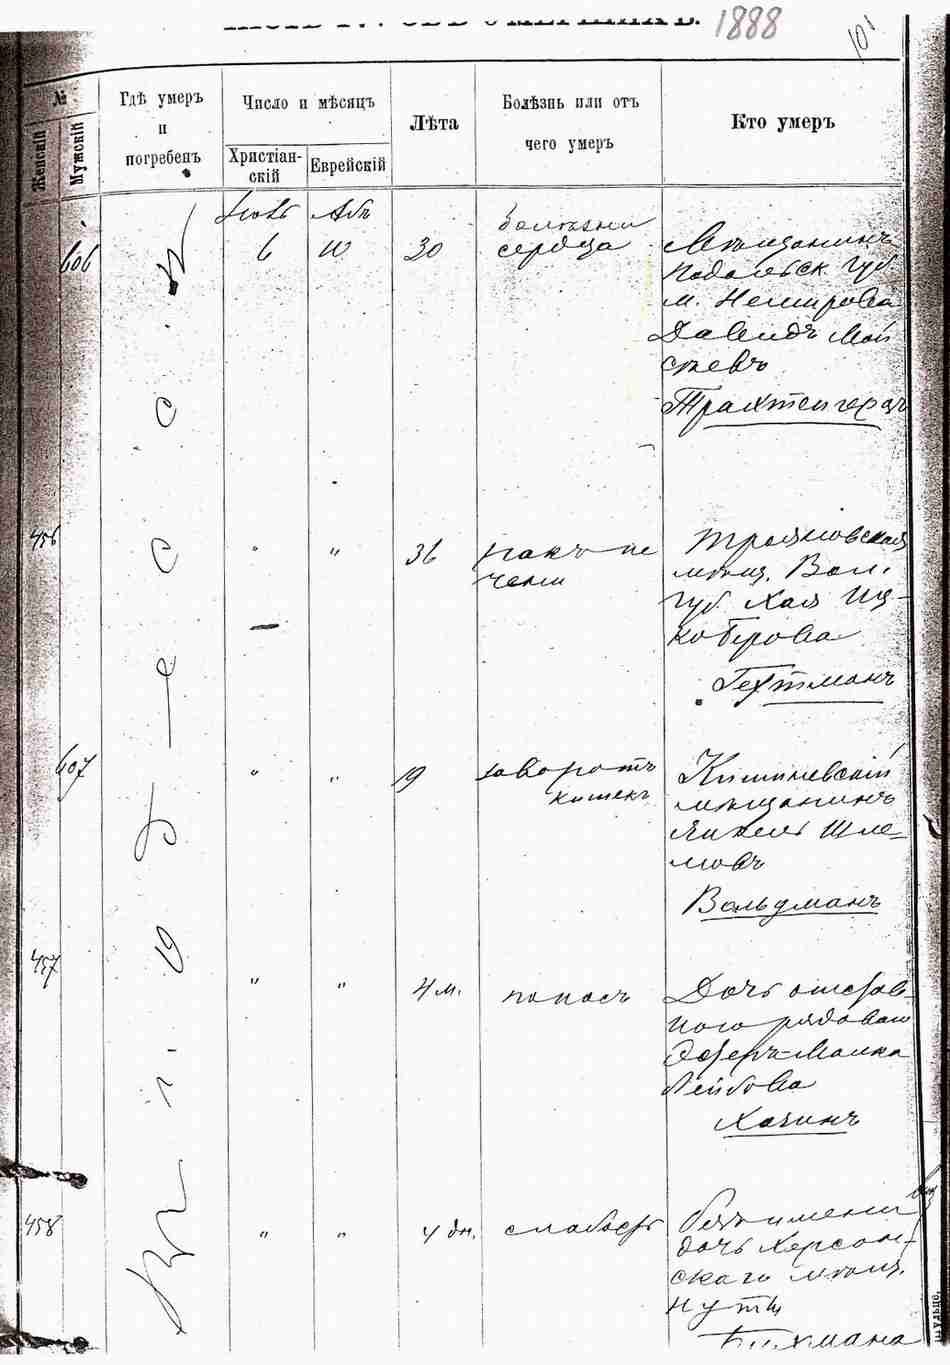 ЧАСТЬ IV. ОБЪ УМЕРШИХЪ. 1888
101
№
Женскій
Мужскій
Гдѣ умеръ
и
погребенъ
Число и мѣсяцъ
Христіан-
скій
Еврейскій
Лѣта
Болѣзнь или отъ
чего умеръ
Кто умеръ
Въ г. Одессѣ
Абъ
606
6
10
30
болѣзни
сердца
Мѣщанинъ
Подольск. губ
м. Немирова
Давидъ Мой
сѣевъ
Трахтенгерцъ
456
"
"
36
ракъ пе
чени
Трояновская
мѣщ. Вол.
губ. Хая Иц-
коберова
Гехтманъ
607
"
"
19
заворотъ
кишекъ
Кишиневскій
мѣщанинъ
Янкель Шле-
мовъ
Вольдманъ
457
"
"
4 м.
поносъ
Дочь отстав-
ного рядового
Эсѳеръ-Малка
Лейбова
Хазинъ
458
"
"
4 дн.
слабость
безъ имени
дочь Херсон-
скаго мѣщ.
Бихмана